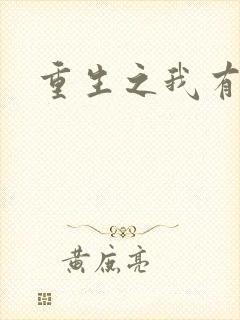 重生之我有
黄庶亮